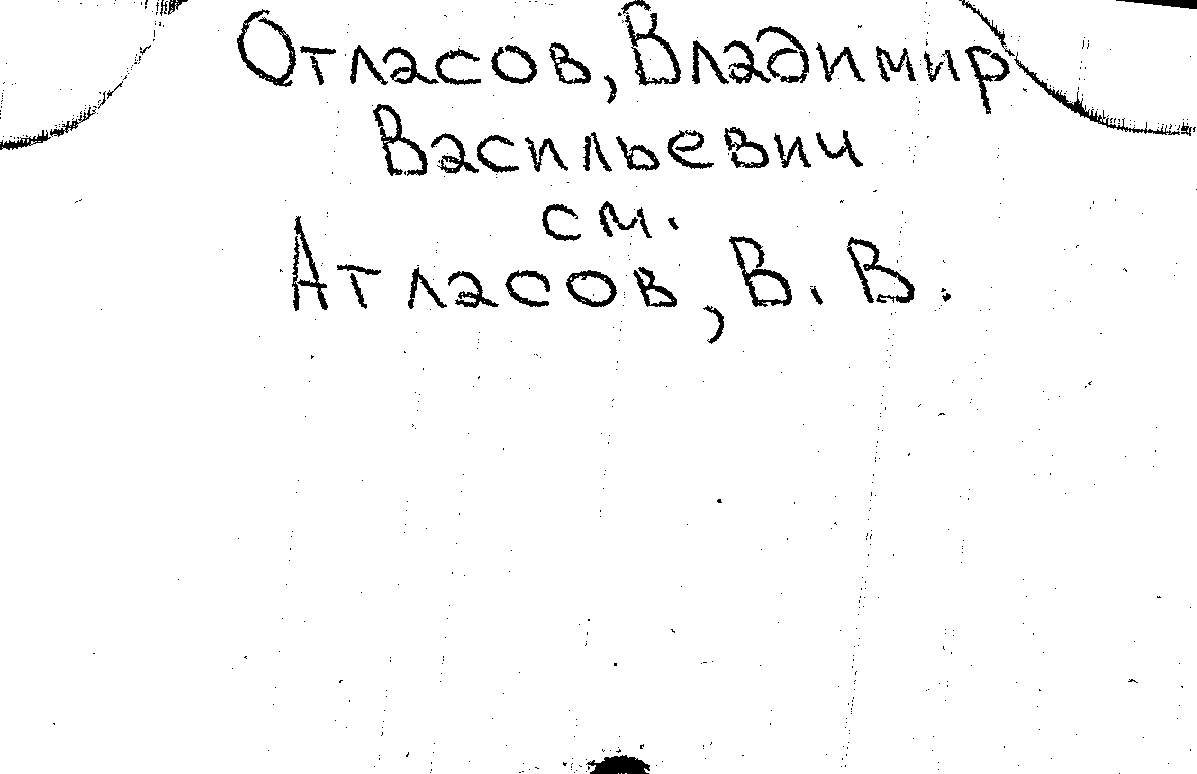 Отласов, Владимир
Васильевич
см.
Атласов, В. В.